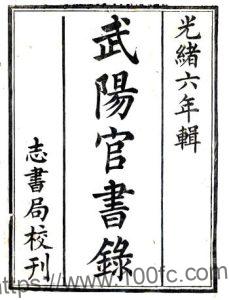 光緒六年輯
武陽官書錄
志書局校刊
https://www.100fc.com